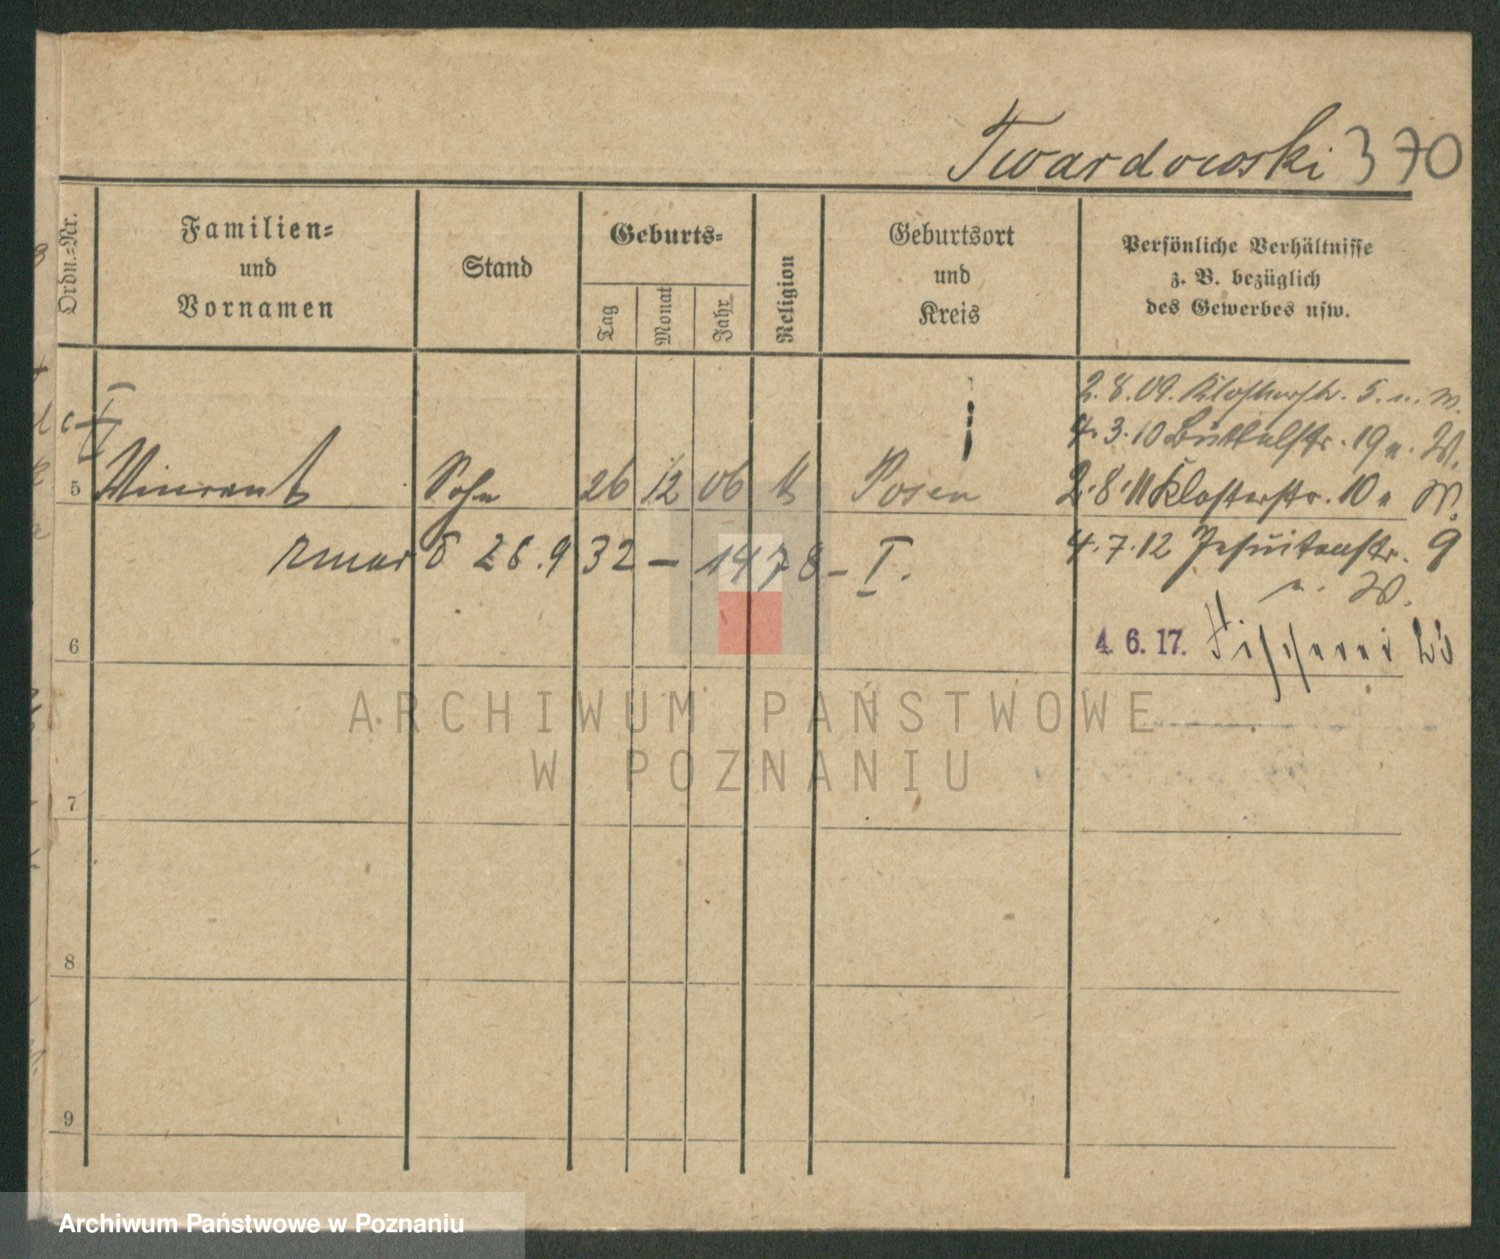 Twardowski 370
Ordn.-Nr.
Familien-
und
Vornamen
Stand
Geburts-
Tag
Monat
Jahr
Religion
Geburtsort
und
Kreis
Persönliche Verhältnisse
z. B. bezüglich
des Gewerbes usw.
2.8.09. Klosterstr. 5. n. W.
4.3.10 Büttelstr. 19 n. W.
5 Vincent Sohn 26 12 06 Posen
2.8.11 Klosterstr. 10 n W.
zmarł 26.9 32 – 1478 – I.
4.7.12 Jesuitenstr. 9
n. W.
4.6.17. Fischerei
6
7
8
9
ARCHIWUM PAŃSTWOWE
W POZNANIU
Archiwum Państwowe w Poznaniu